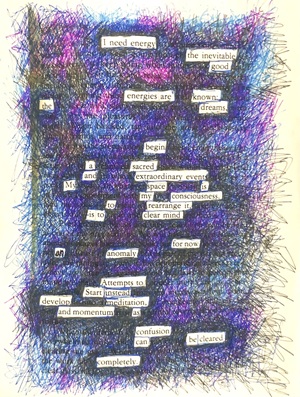 I need energy
the inevitable
good
the energies are known:
dreams.
begin
a sacred
and extraordinary event
My space is
my consciousness.
to rearrange it,
is to clear mind
for now
an anomaly
Attempts to
Start instead
develop meditation,
and momentum as
confusion
can be cleared
completely.